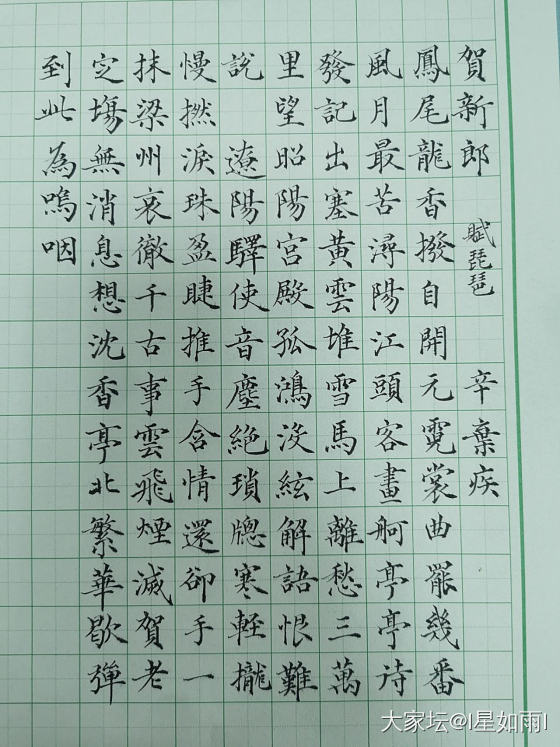 賀新郎 賦琵琶 辛棄疾
鳳尾龍香撥自開元霓裳曲罷幾番
風月最苦潯陽江頭客畫舸亭亭待
發記出塞黃雲堆雪馬上離愁三萬
里望昭陽宮殿孤鴻沒絃解語恨難
說 遼陽驛使音塵絕瑣牕寒輕攏
慢撚淚珠盈睫推手含情還卻手一
抹梁州哀徹千古事雲飛煙滅賀老
定塲無消息想沈香亭北繁華歇彈
到此為嗚咽
大家坛@I星如雨I